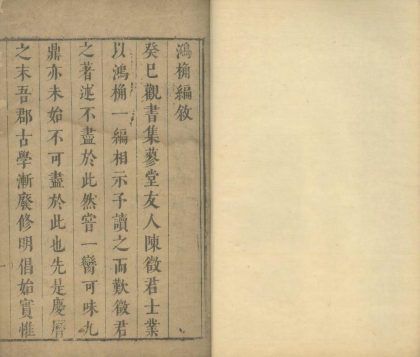 鴻桷編敘
癸巳觀書集蓼堂友人陳徵君士業
以鴻桷一編相示予讀之而歎徵君
之著述不盡於此然甞一臠可味九
鼎亦未始不可盡於此也先是慶曆
之末吾郡古學漸廢修明倡始實惟